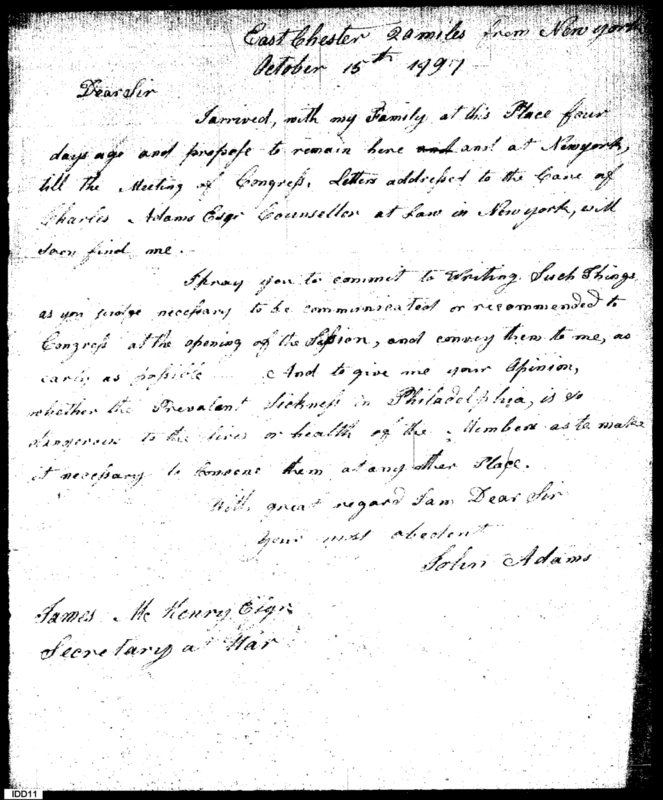 East Chester 20 miles from New york
October 15th 1797
Dear Sir
I arrived, with my Family at this Place four
days ago and propose to remain here and and at Newyork,
till the Meeting of Congress. Letters addressed to the Care of
Charles Adams Esqr Counseller at Law in Newyork, will
soon find me.
I pray you to commit to Writing Such Things
as you judge necessary to be communicated or recommended to
Congress at the opening of the Session, and convey them to me, as
early as possible And to give me your Opinion,
whether the Prevalent Sickness in Philadelphia, is so
dangerous to the lives or health of the Members as to make
it necessary to Convene them at any other Place.
With great regard I am Dear Sir
your most obedent
John Adams
James Mc Henry Esqr
Secretary at War
IDD11